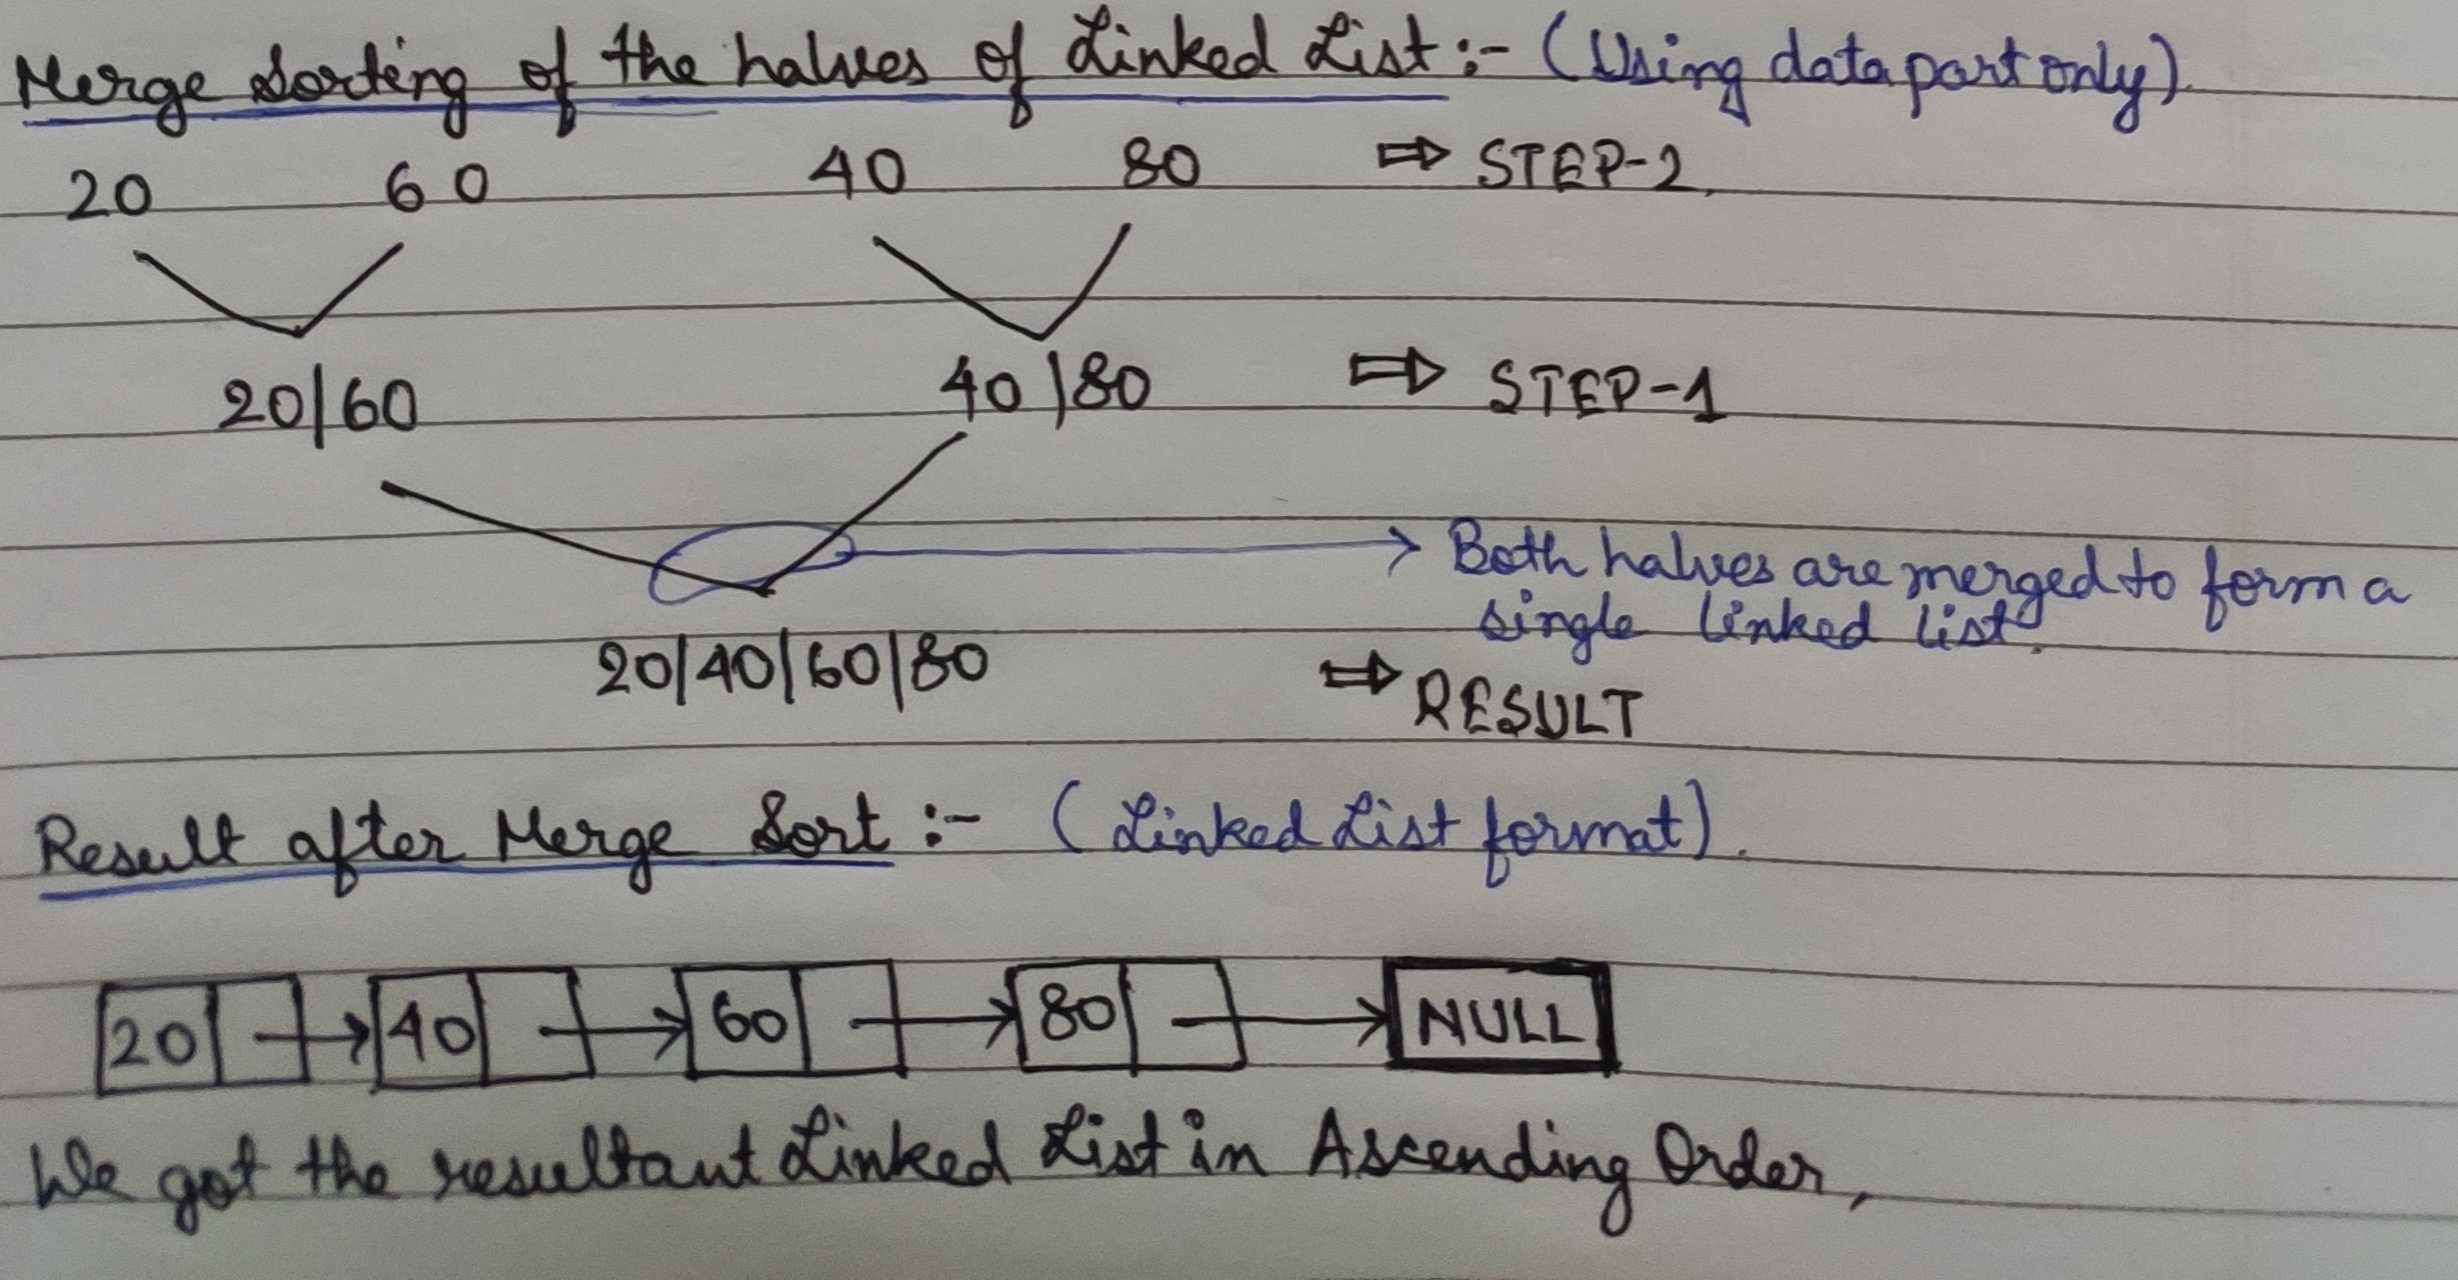 Merge Sorting of the halves of Linked List :- (Using data part only).
20 60 40 80 ⇒ STEP-2.
20/60 40/80 ⇒ STEP-1
Both halves are merged to form a
single linked list.
20/40/60/80 ⇒ RESULT
Result after Merge Sort :- (Linked List format).
20 → 40 → 60 → 80 → NULL
We got the resultant Linked List in Ascending Order,